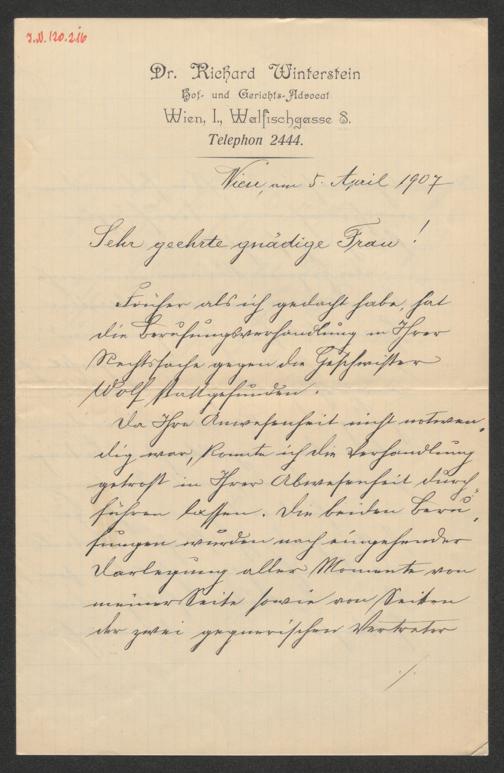 J.N. 120.216
Dr. Richard Winterstein
Hof- und Gerichts-Advocat
Wien, I., Walfischgasse 8.
Telephon 2444.
Wien, am 5. April 1907
Sehr geehrte gnädige Frau!
Früher als ich gedacht habe, hat
die Berufungsverhandlung in Ihrer
Rechtssache gegen die Geschwister
Wolf stattgefunden.
Da Ihre Anwesenheit nicht notwen-
dig war, konnte ich die Verhandlung
getrost in Ihrer Abwesenheit durch-
führen lassen. Die beiden Beru-
fungen wurden nach eingehender
Darlegung aller Momente von
meiner Seite sowie von Seiten
der zwei gegnerischen Vertreter
./.